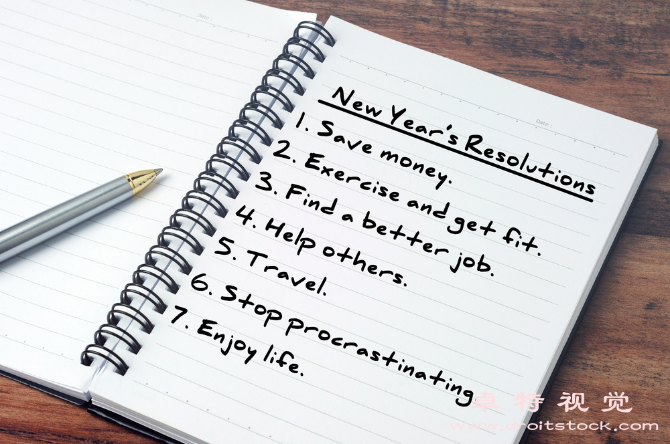 Date :
New Year's Resolutions
1. Save money.
2. Exercise and get fit.
3. Find a better job.
4. Help others.
5. Travel.
6. Stop procrastinating
7. Enjoy life.
卓特视觉
www.droitstock.com